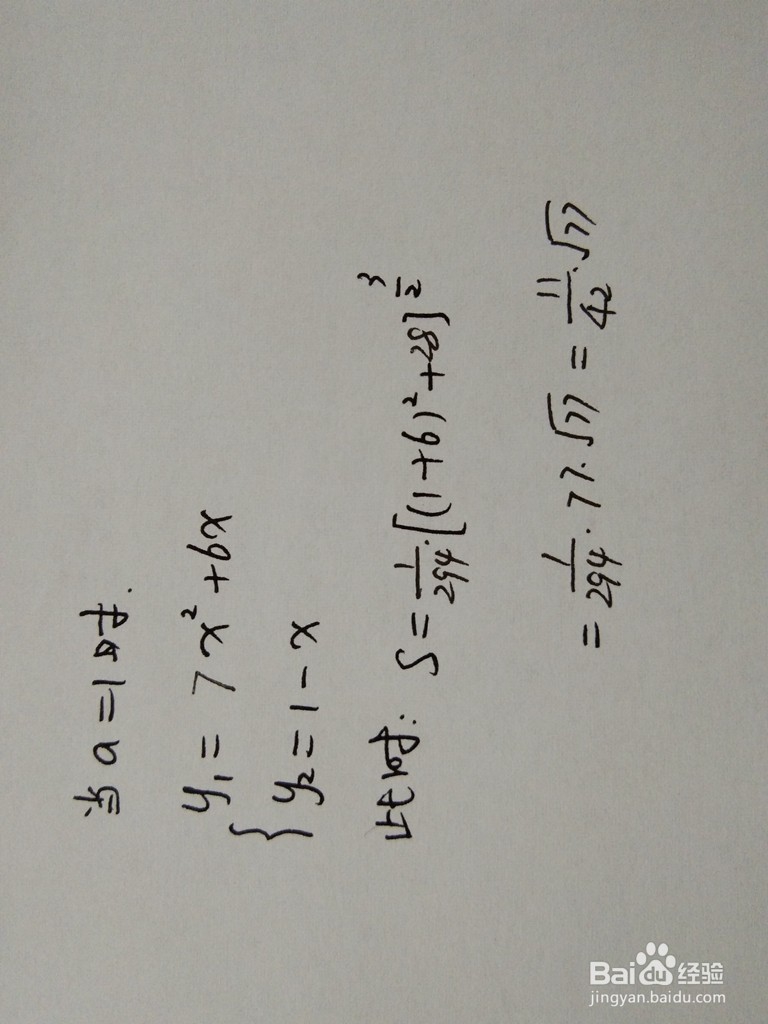 当a=1时.
y₁=7x²+6x
{y₂=1-x
此时: S=1/294·[(1+6)²+28]^(3/2)
=1/294·77·√77=11/42·√77
Baidu经验
jingyan.baidu.com